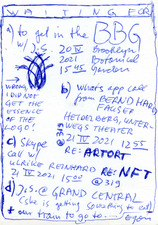 WAITING FOR
a) to get in the BBG
w/ J.S. Brooklyn
20 IV Botanical
2021 Garden
15 45
WRONG,
I DID NOT
GET THE
ESSENCE
OF THE
LOGO!
b) What's app call
from BERND HARD
FAUSER
HEIDELBERG, UNTER-
WEGS THEATER
@ 21 IV 2021 12 55
RE: ARTORT
c) Skype
call w/
ULRIKE REINHARD RE: NFT
21 IV 2021 15 00 @ 319
d) J.S. @ GRAND CENTRAL
(she is getting something to eat)
+ our train to go to....